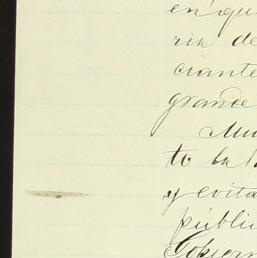 en que
ria de
ciante
grande
Mu
to la
y evita
públi
Gobier